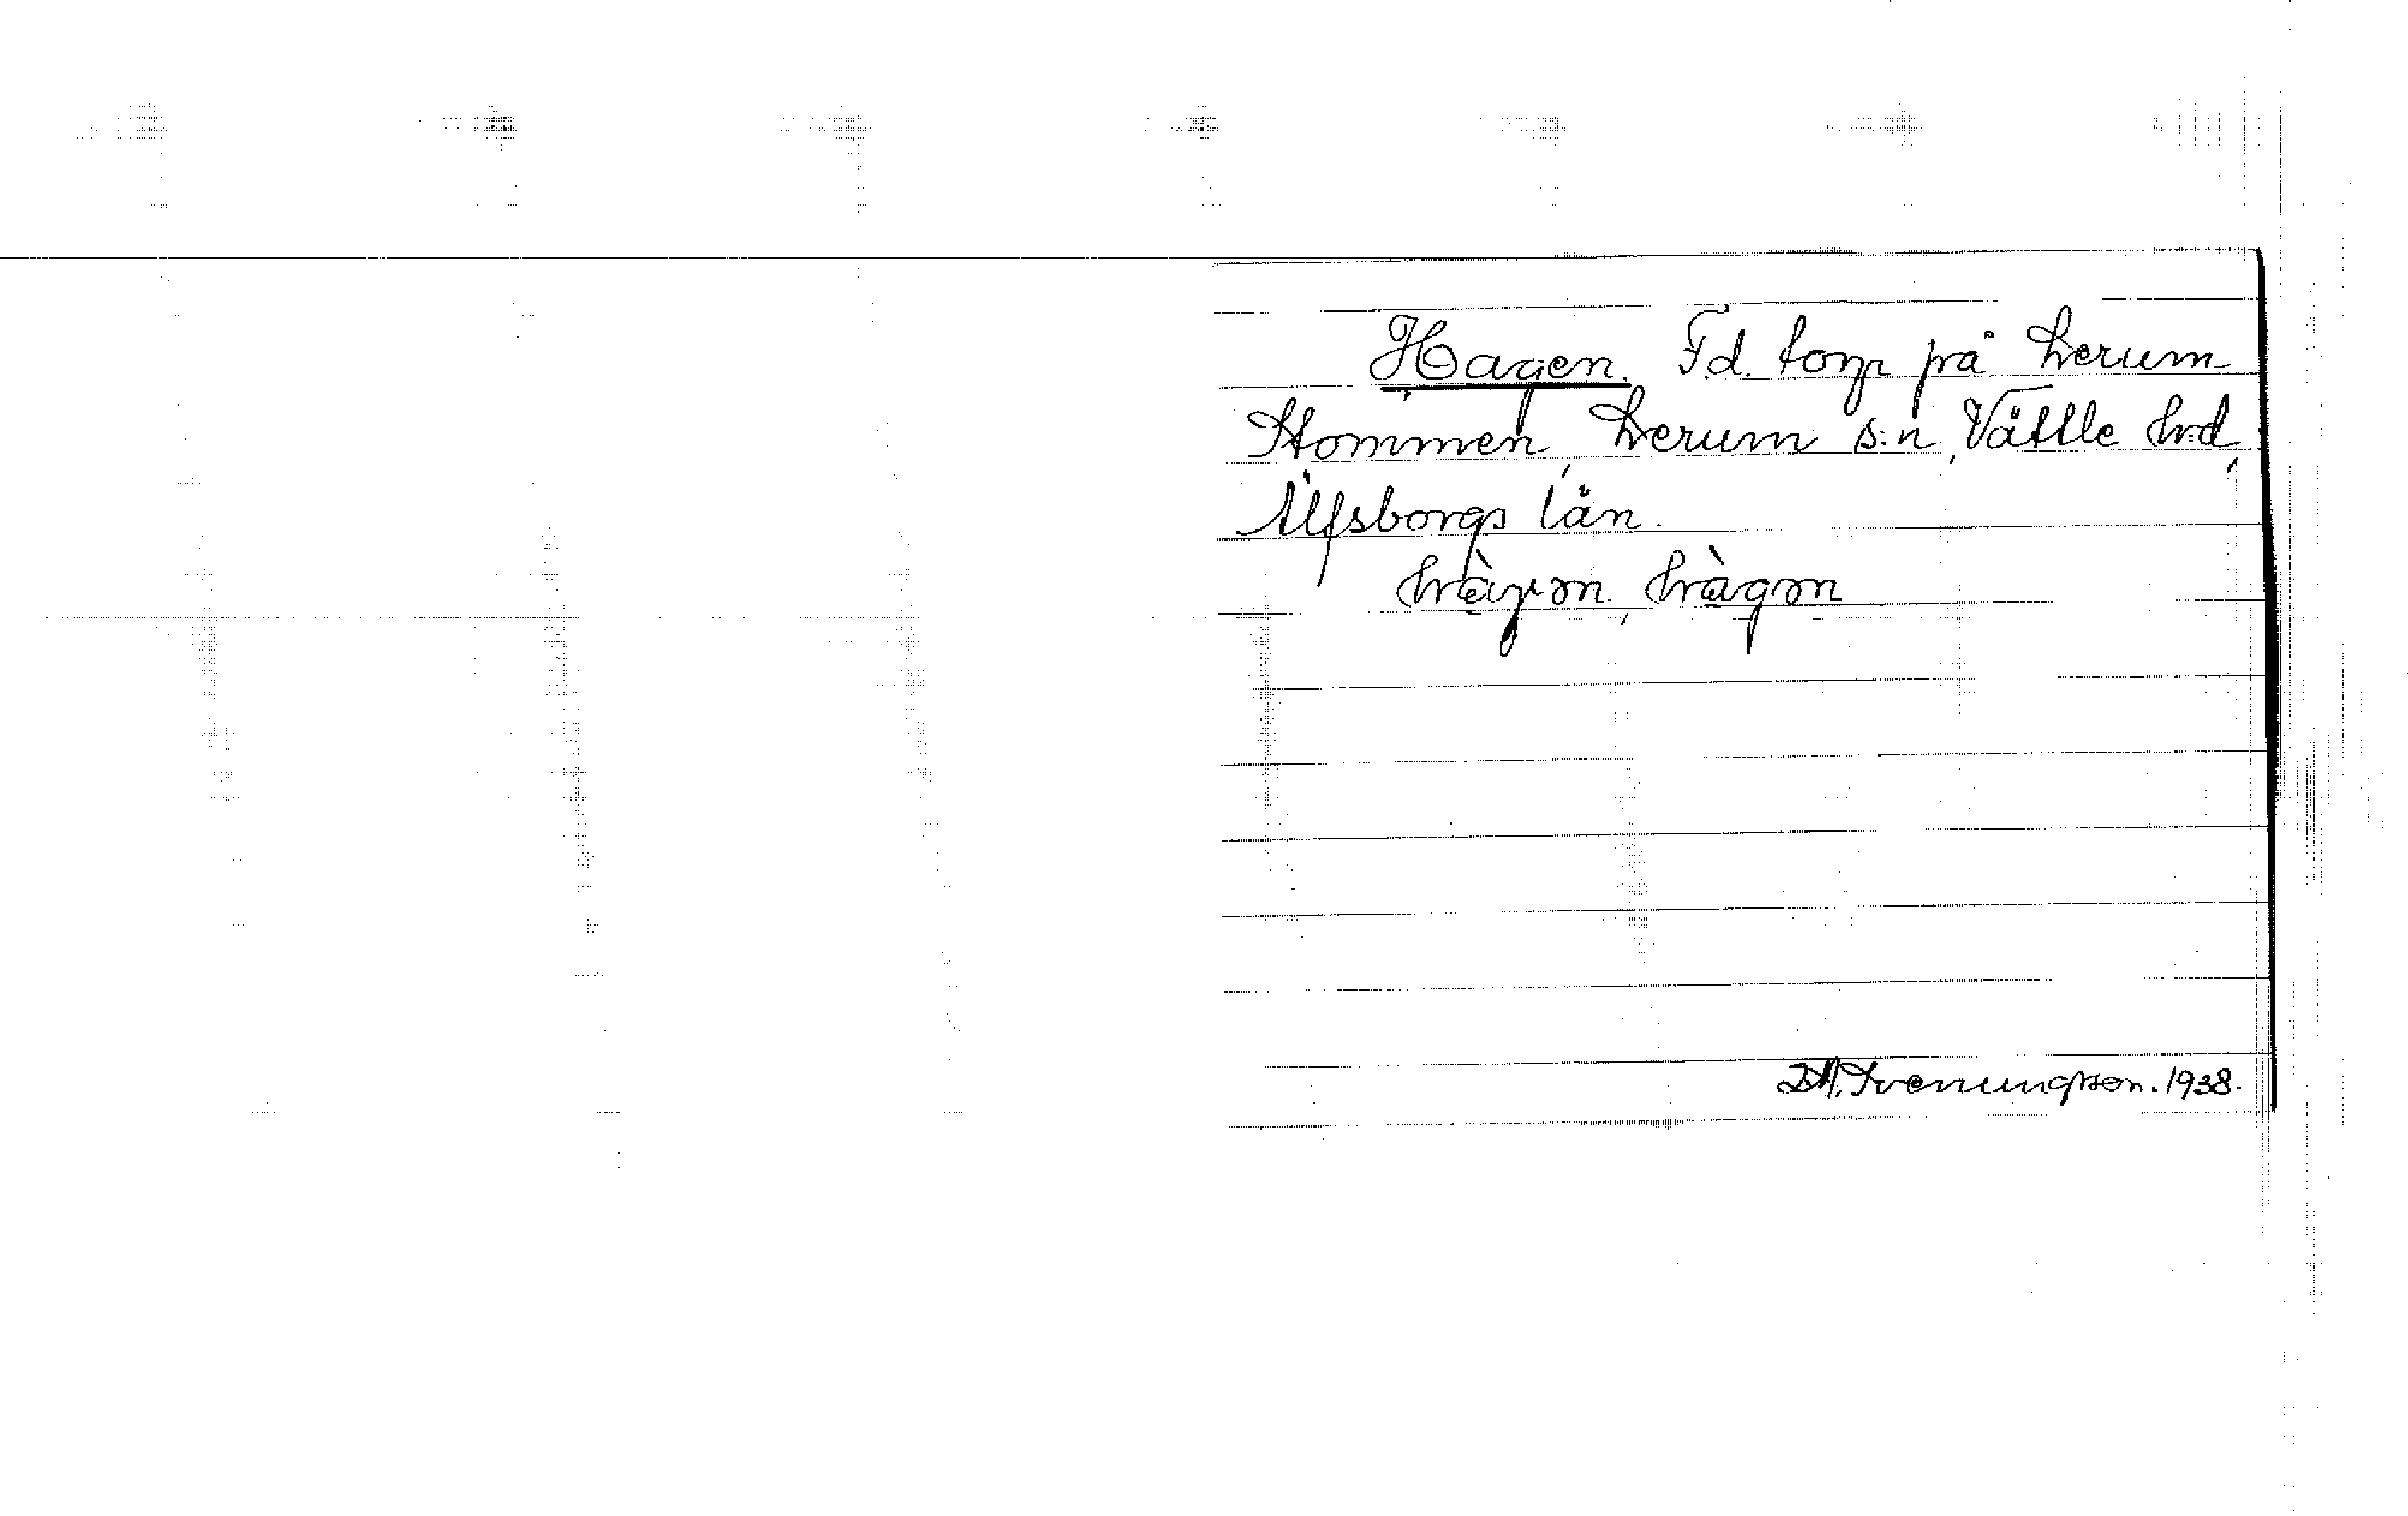 Hagen. F.d. torp på Lerum
Stommen, Lerum s:n, Vättle h:d,
Älfsborgs län.
hàɣən, hàgən
D.A. Svenungsson. 1938.